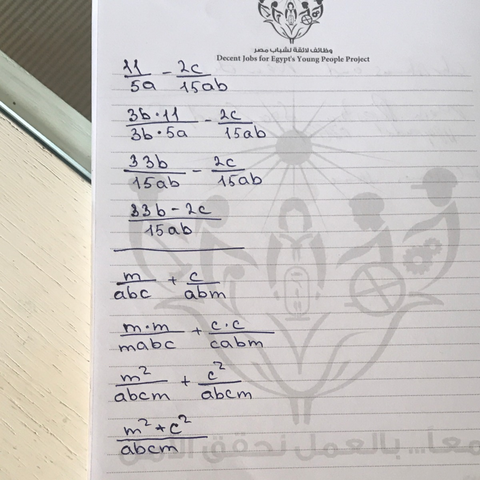 وظائف لائقة لشباب مصر
Decent Jobs for Egypt's Young People Project
11/5a - 2c/15ab
3b·11/3b·5a - 2c/15ab
33b/15ab - 2c/15ab
33b - 2c/15ab
m/abc + c/abm
m·m/mabc + c·c/cabm
m²/abcm + c²/abcm
m² + c²/abcm
معاً... بالعمل نحقق